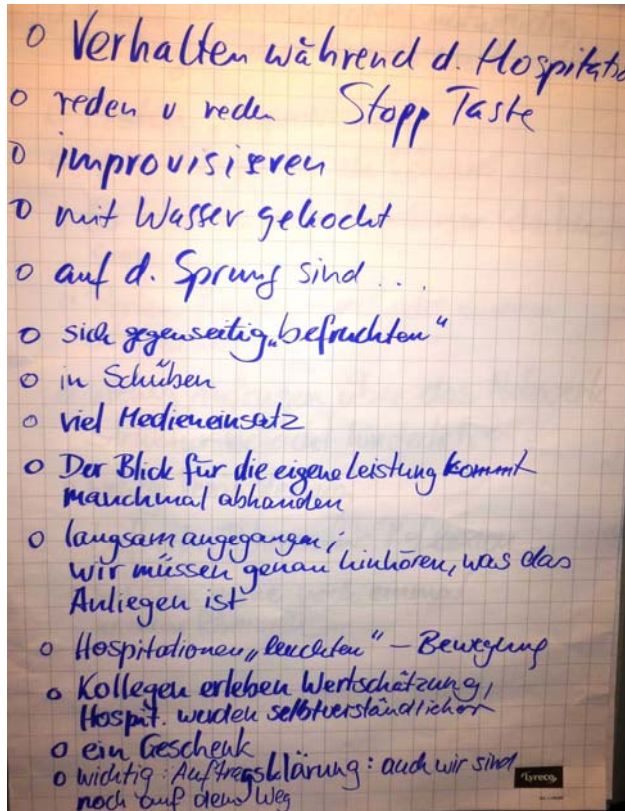 o Verhalten während d. Hospitatio
o reden u reden Stopp Taste
o improvisieren
o mit Wasser gekocht
o auf d. Sprung sind ...
o sich gegenseitig „befruchten“
o in Schüben
o viel Medieneinsatz
o Der Blick für die eigene Leistung kommt
manchmal abhanden
o langsam angegangen;
wir müssen genau hinhören, was das
Anliegen ist
o Hospitationen „leuchten“ – Bewegung
o Kollegen erleben Wertschätzung,
Hospit. werden selbstverständlicher
o ein Geschenk
o wichtig: Auftragsklärung: auch wir sind
noch auf dem Weg
Lyreco